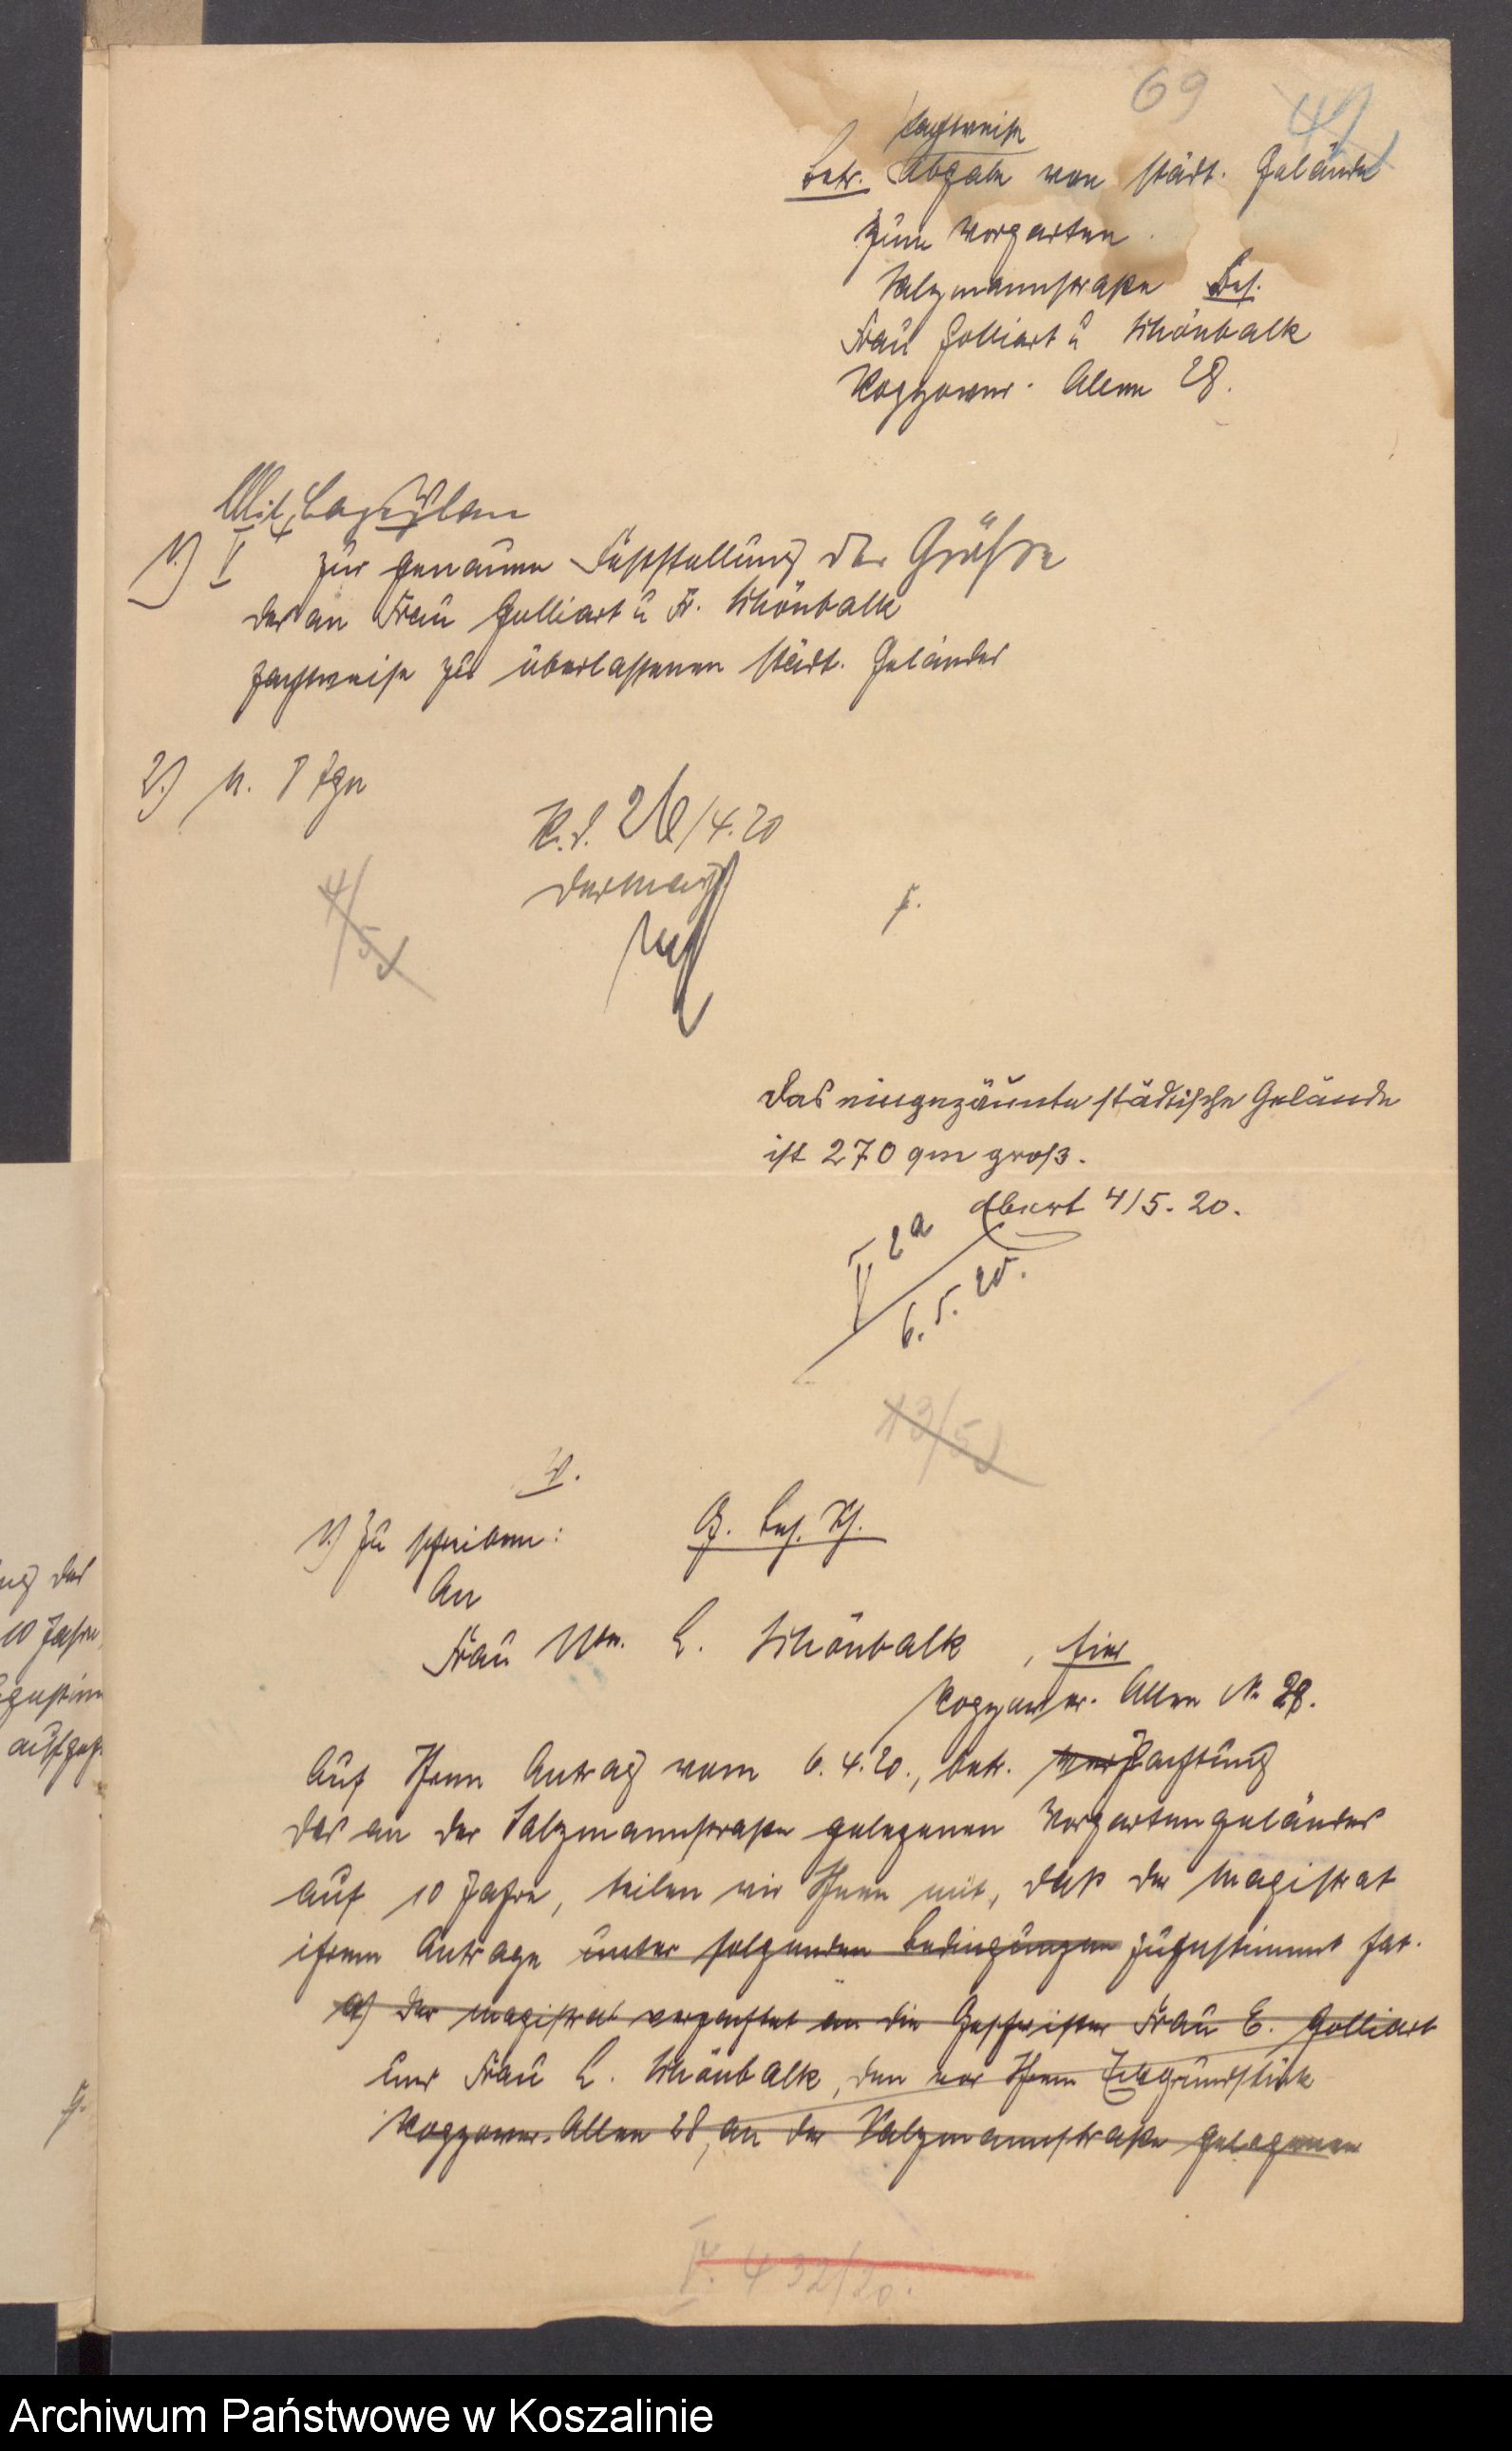 69
pachtweise
Betr. Abgabe von städt. Gelände
zum Vorgarten
Salzmannstraße Bes.
Frau Golliart u Schönbalk
Rogzower Allee 28.
Mit Lageplan
1.) V zur genauen Feststellung der Größe
des an Frau Golliart u Fr. Schönbalk
pachtweise zu überlassenen städt. Geländes
2.) n. 8 Tgn
K. d. 26/4.20
Der Mag
4/5
F.
Das eingezäunte städtische Gelände
ist 270 qm groß.
4/5. 20.
V 2a
6. 5. 20.
13/5
V.
1.) Zu schreiben:
An
Frau Ww. L. Schönbalk, hier
Rogzower. Allee No 28.
Auf Ihren Antrag vom 6.4.20., betr. verpachtung
des an der Salzmannstraße gelegenen Vorgartengeländes
auf 10 Jahre, teilen wir Ihnen mit, daß der Magistrat
ihrem Antrage unter folgenden Bedingungen zugestimmt hat.
a) Der Magistrat verpachtet an die Geschwister Frau E. Golliart
und Frau L. Schönbalk, den vor Ihrem Grundstück
Rogzower. Allee 28, an der Salzmannstraße gelegenen
V. 432/20.
des
10 Jahre
F.
Archiwum Państwowe w Koszalinie